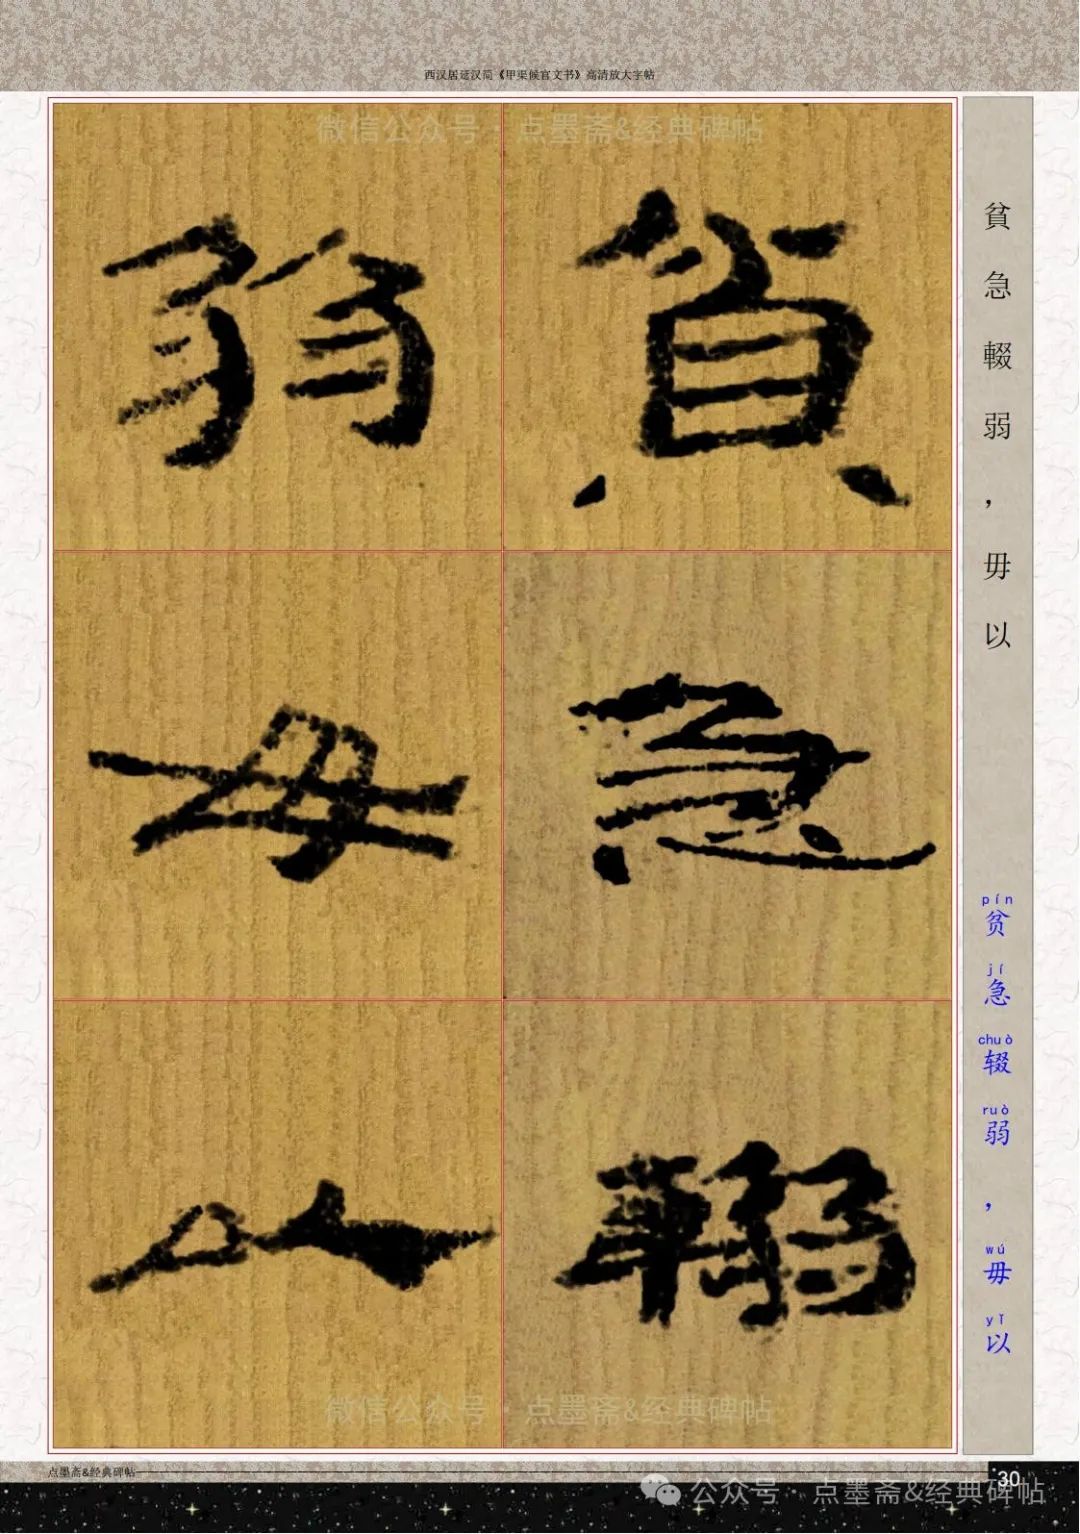 西汉居延汉简《甲渠候官文书》高清放大字帖
微信公众号·点墨斋&经典碑帖
貧
急
輟
弱
毋
以
貧急輟弱，毋以
pín jí chuò ruò wú yǐ
贫急辍弱，毋以
微信公众号·点墨斋&经典碑帖
点墨斋&经典碑帖
30
公众号·点墨斋&经典碑帖